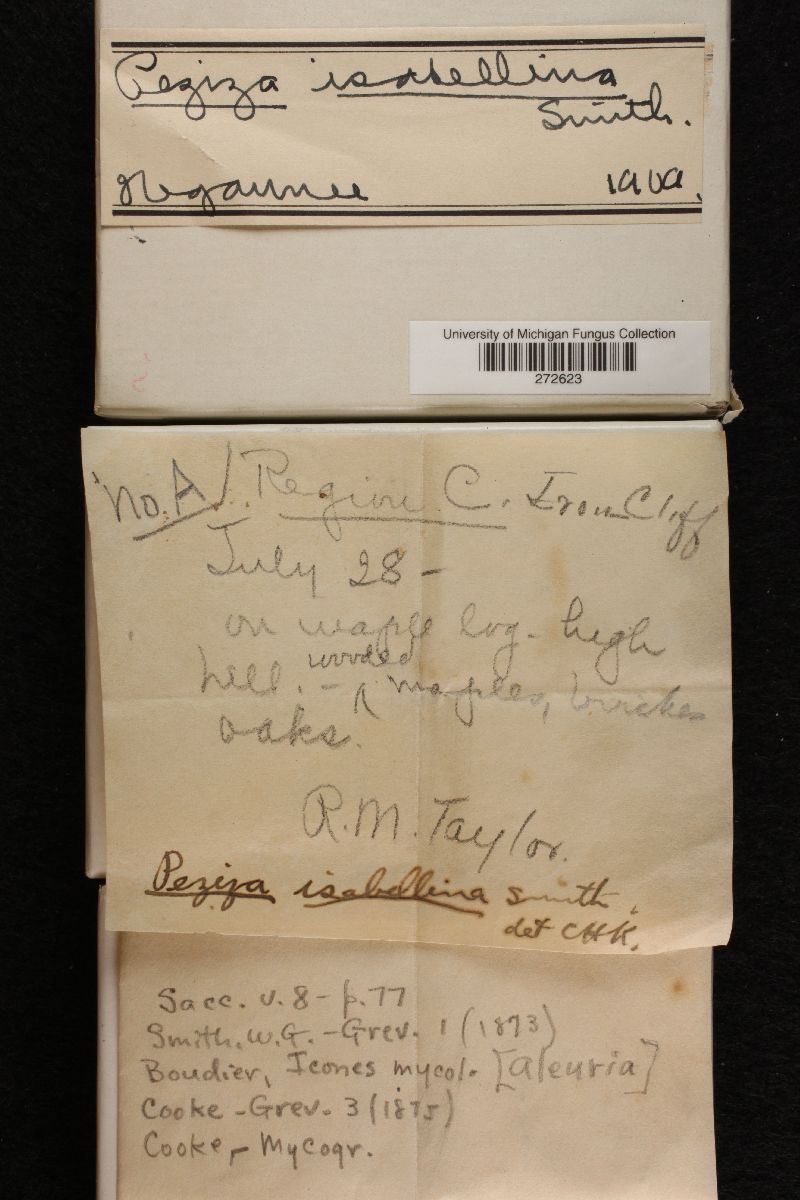 Peziza isabellina
Smith.
Negaunee 1909.
University of Michigan Fungus Collection
272623
No. A / Region C. Iron Cliff
July 28 -
on maple log - high
hill. - wooded maples, birches
oaks.
R.M. Taylor.
Peziza isabellina Smith.
det CHK.
Sacc. v. 8 - p. 77
Smith. W.G. - Grev. 1 (1873)
Boudier, Icones mycol. [Aleuria]
Cooke - Grev. 3 (1875)
Cooke, - Mycogr.